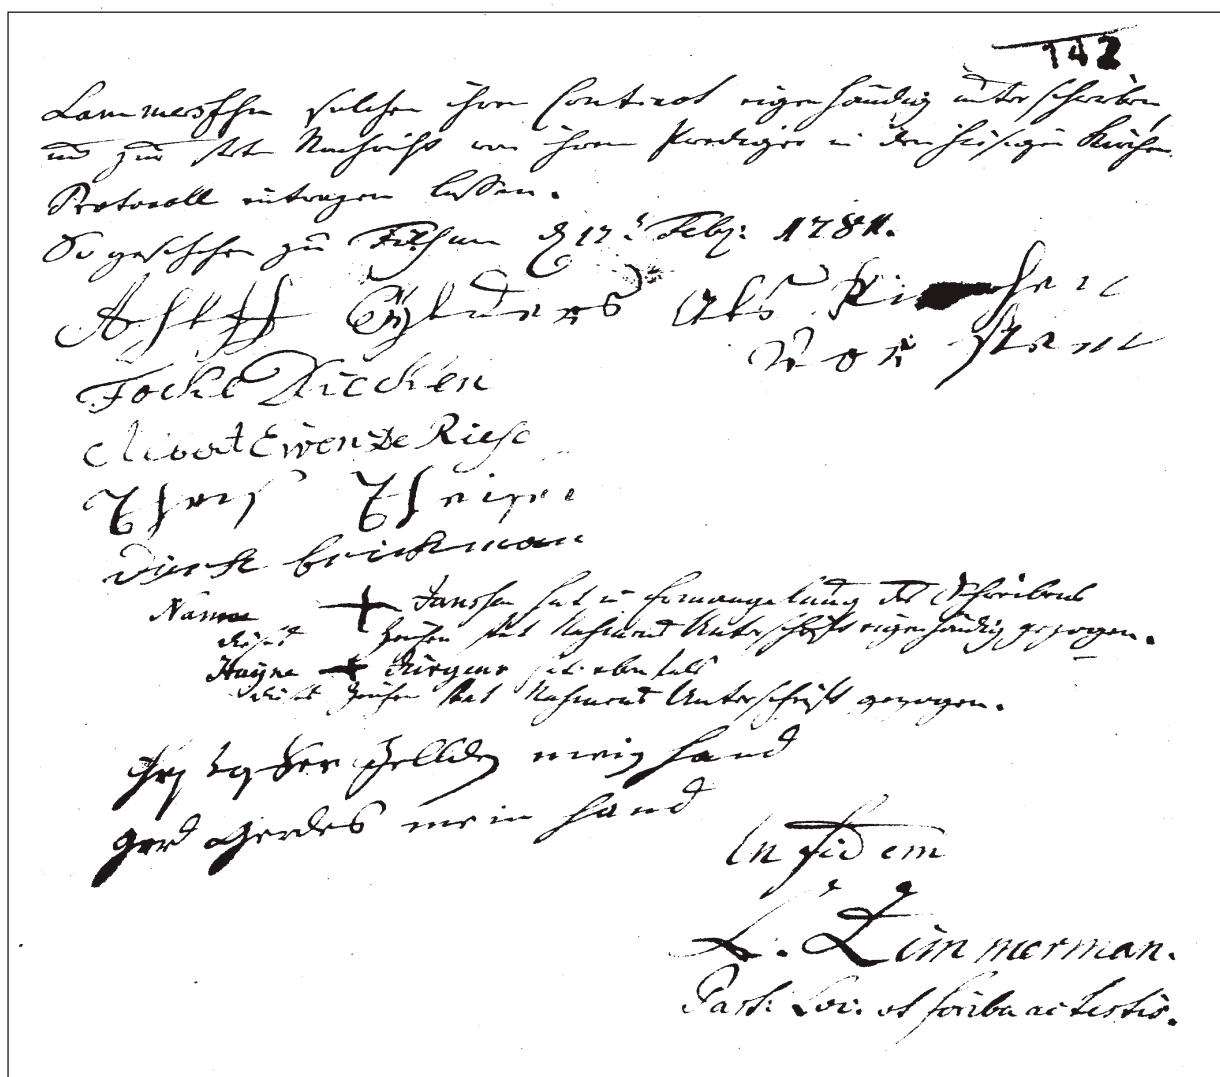 142
Lammersfehn solchen ihren Contract eigenhändig unterschrieben,
und zur steten Nachricht von ihrem Prediger in den hiesigen Kirchen
Protocoll eintragen lassen.
So geschehen zu Filsum d 17t Febr: 1781.
Als Kirchen
Vorstehr
Focke Diecken
Ewen De Riese
Dirck brickman
Nanne + Janssen hat in Ermangelung des Schreibens
dieses Zeichen statt Nahmens Unterschrift eigenhändig gezogen.
Hayne + Jürgens hat ebenfals
dieses Zeichen statt Nahmens Unterschrift gezogen.
mein hand
gerd gerdes mein hand
In fidem
L. Zimmerman.
Past: Loc: et scriba ac testis.